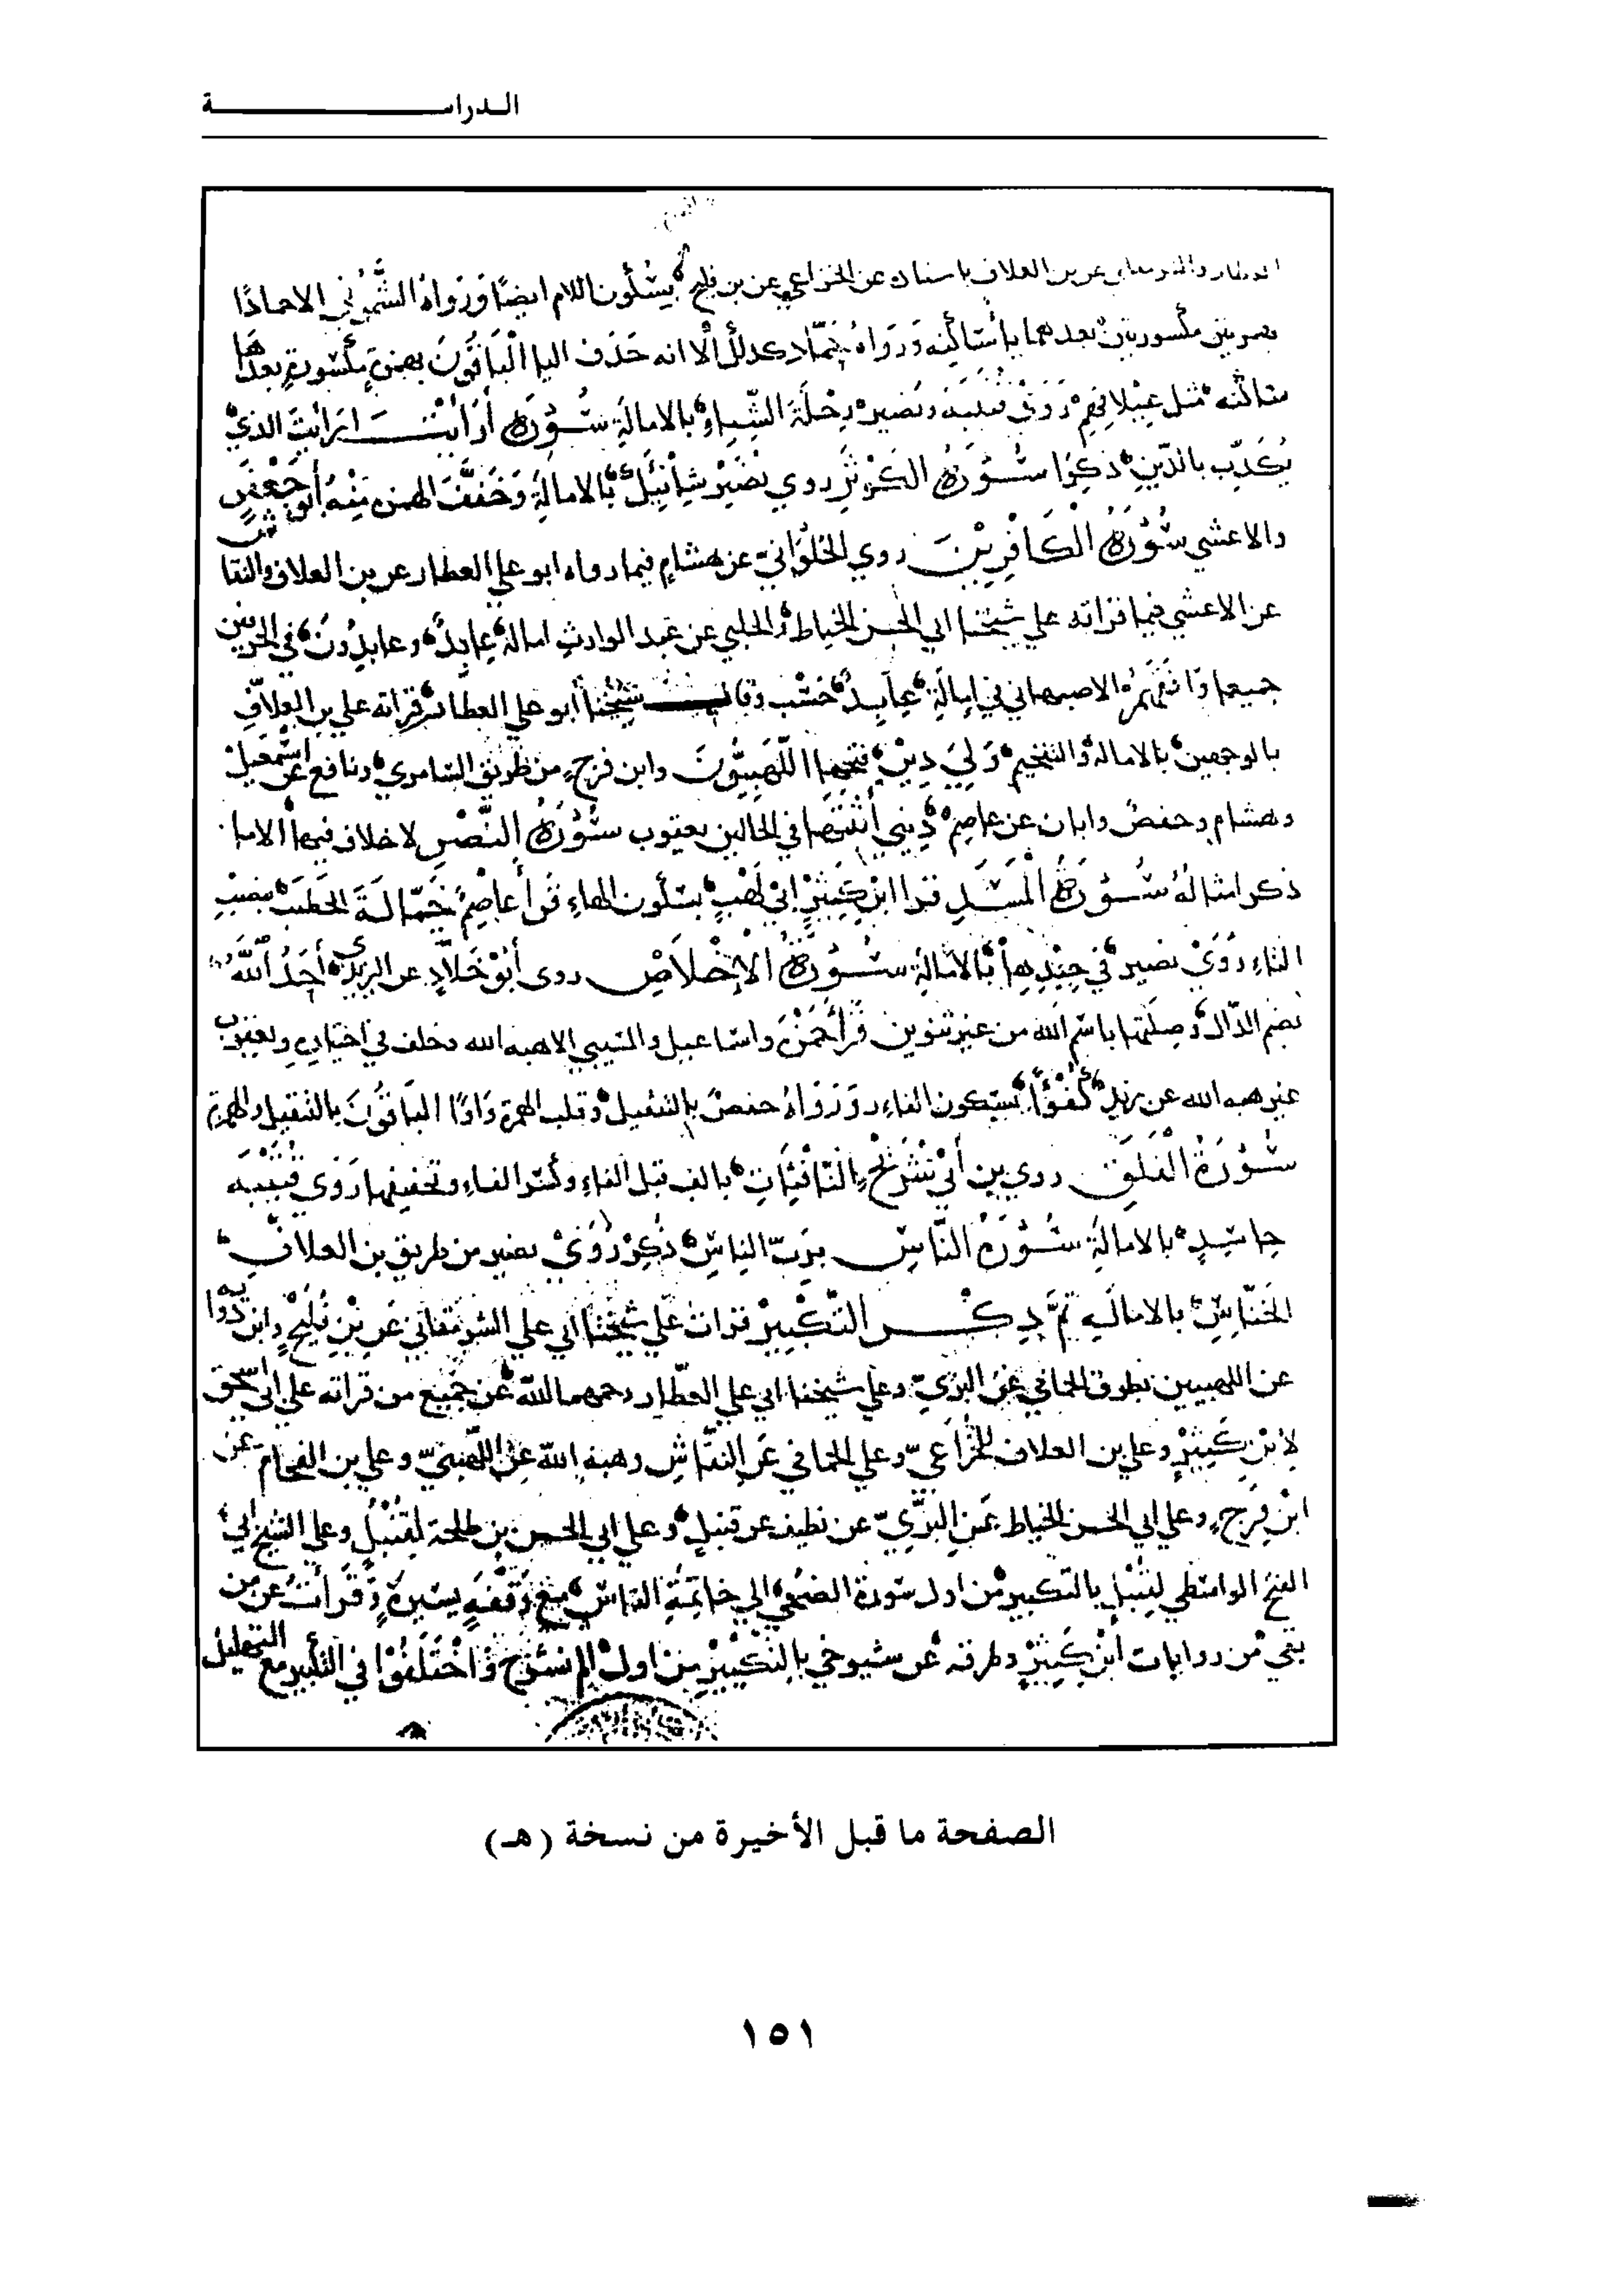 الدراسة
العطار والشرمقاني عن بن العلاف باسناده عن الخزاعي عن بن فليح بسكون اللام ايضا ورواه الشموني الا حمادا
بهمزتين مكسورتين بعدهما يا ساكنه ورواه حماد كذلك الا انه حذف اليا الباقون بهمزة مكسورة بعدها يا
ساكنه مثل عيلافهم روى قتيبه ونصير رحلة الشتاء بالامالة سورة أرأيت ارايت الذي
يكذب بالدين ذكرا سورة الكوثر روي نصير شانئك بالامالة وخفف الهمزه منه أبو جعفر
والاعشي سورة الكافرين روي الحلواني عن هشام فيما رواه ابو علي العطار عن بن العلاف والنقاش
عن الاعشي فيما قراته علي شيخنا ابي الحسن الخياط والحلبي عن عبد الوارث امالة عابد وعابدون في الحرفين
جميعا وافقهم الاصبهاني في إمالة عابد حسب وقال شيخنا أبو علي العطار قراته علي بن العلاف
بالوجهين بالاماله والتفخيم ولي دين فتحها اللهبيون وابن فرح من طريق السامري ونافع عن اسمعيل
وهشام وحفص وابان عن عاصم ديني أثبتها في الحالين يعقوب سورة النصر لا خلاف فيها الا ما
ذكر امثاله سورة المسد قرا ابن كثير ابي لهب بسكون الهاء قرأ عاصم حمالة الحطب بنصب
التاء روى نصير في جيدها بالامالة سورة الإخلاص روى أبو خلاد عن اليزيدي أحد الله
بضم الدال وصلتها باسم الله من غير تنوين قرأ حمزة واسماعيل والمسيبي الا هبه الله وخلف في اختياره ويعقوب
غير هبه الله عن زيد كفؤا بسكون الفاء ورواه حفص بالتثقيل وقلب الهمزة واوا الباقون بالتثقيل والهمزة
سورة الفلق روي بن أبي شريح النافثات بالف قبل الفاء وكسر الفاء وتخفيفها روى قتيبه
حاسد بالامالة سورة الناس برب الناس ذكر روى نصير من طريق بن العلاف
الخناس بالاماله تم ذكر التكبير قرات علي شيخنا ابي علي الشرمقاني عن بن فليح وابن ذوابه
عن اللهبيين بطرق الحمامي عن البزي وعلي شيخنا ابي علي العطار رحمهما الله عن جميع من قراته علي ابي اسحق
لابن كثير وعلي بن العلاف للخزاعي وعلي الحمامي عن النقاش وهبه الله عن اللهبي وعلي بن الفحام عن
ابن فرح وعلي ابي الحسن الخياط عن البزي عن نظيف عن قنبل وعلي ابي الحسن بن طلحة لقنبل وعلي الشيخ ابي
الفتح الواسطي لقنبل بالتكبير من اول سورة الضحى الي خاتمة الناس مع وقفه يسيرة وقرأت عن من
بقي من روايات ابن كثير وطرقه عن شيوخي بالتكبير من اول الم نشرح واختلفوا في التكبير مع التهليل
الصفحة ما قبل الأخيرة من نسخة (هـ)
١٥١